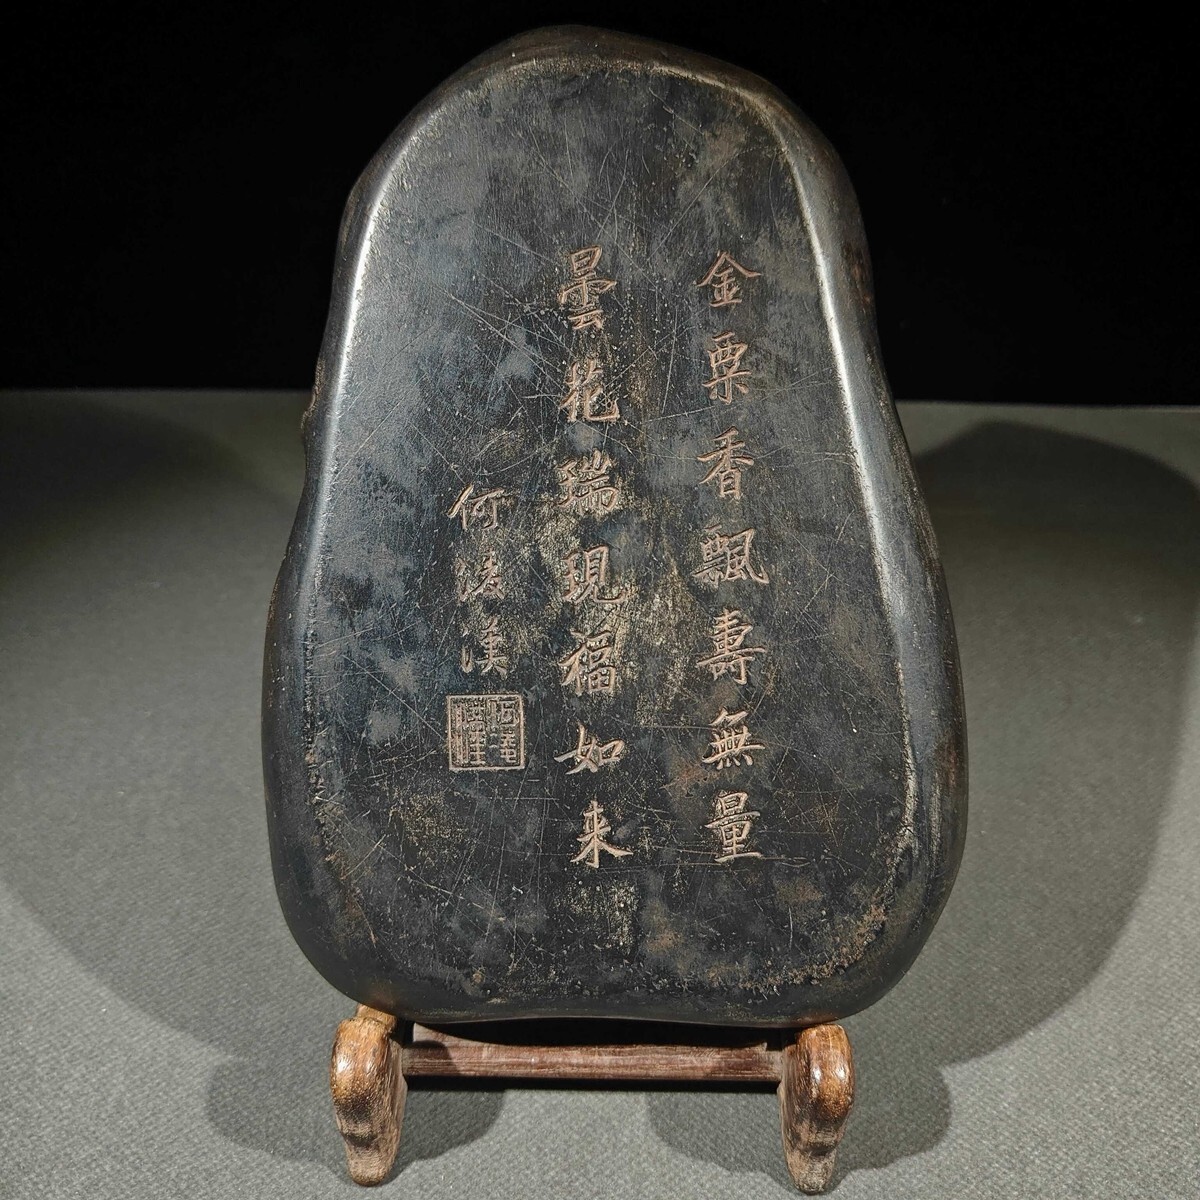 金粟香飄壽無量
曇花瑞現福如来
何法漢